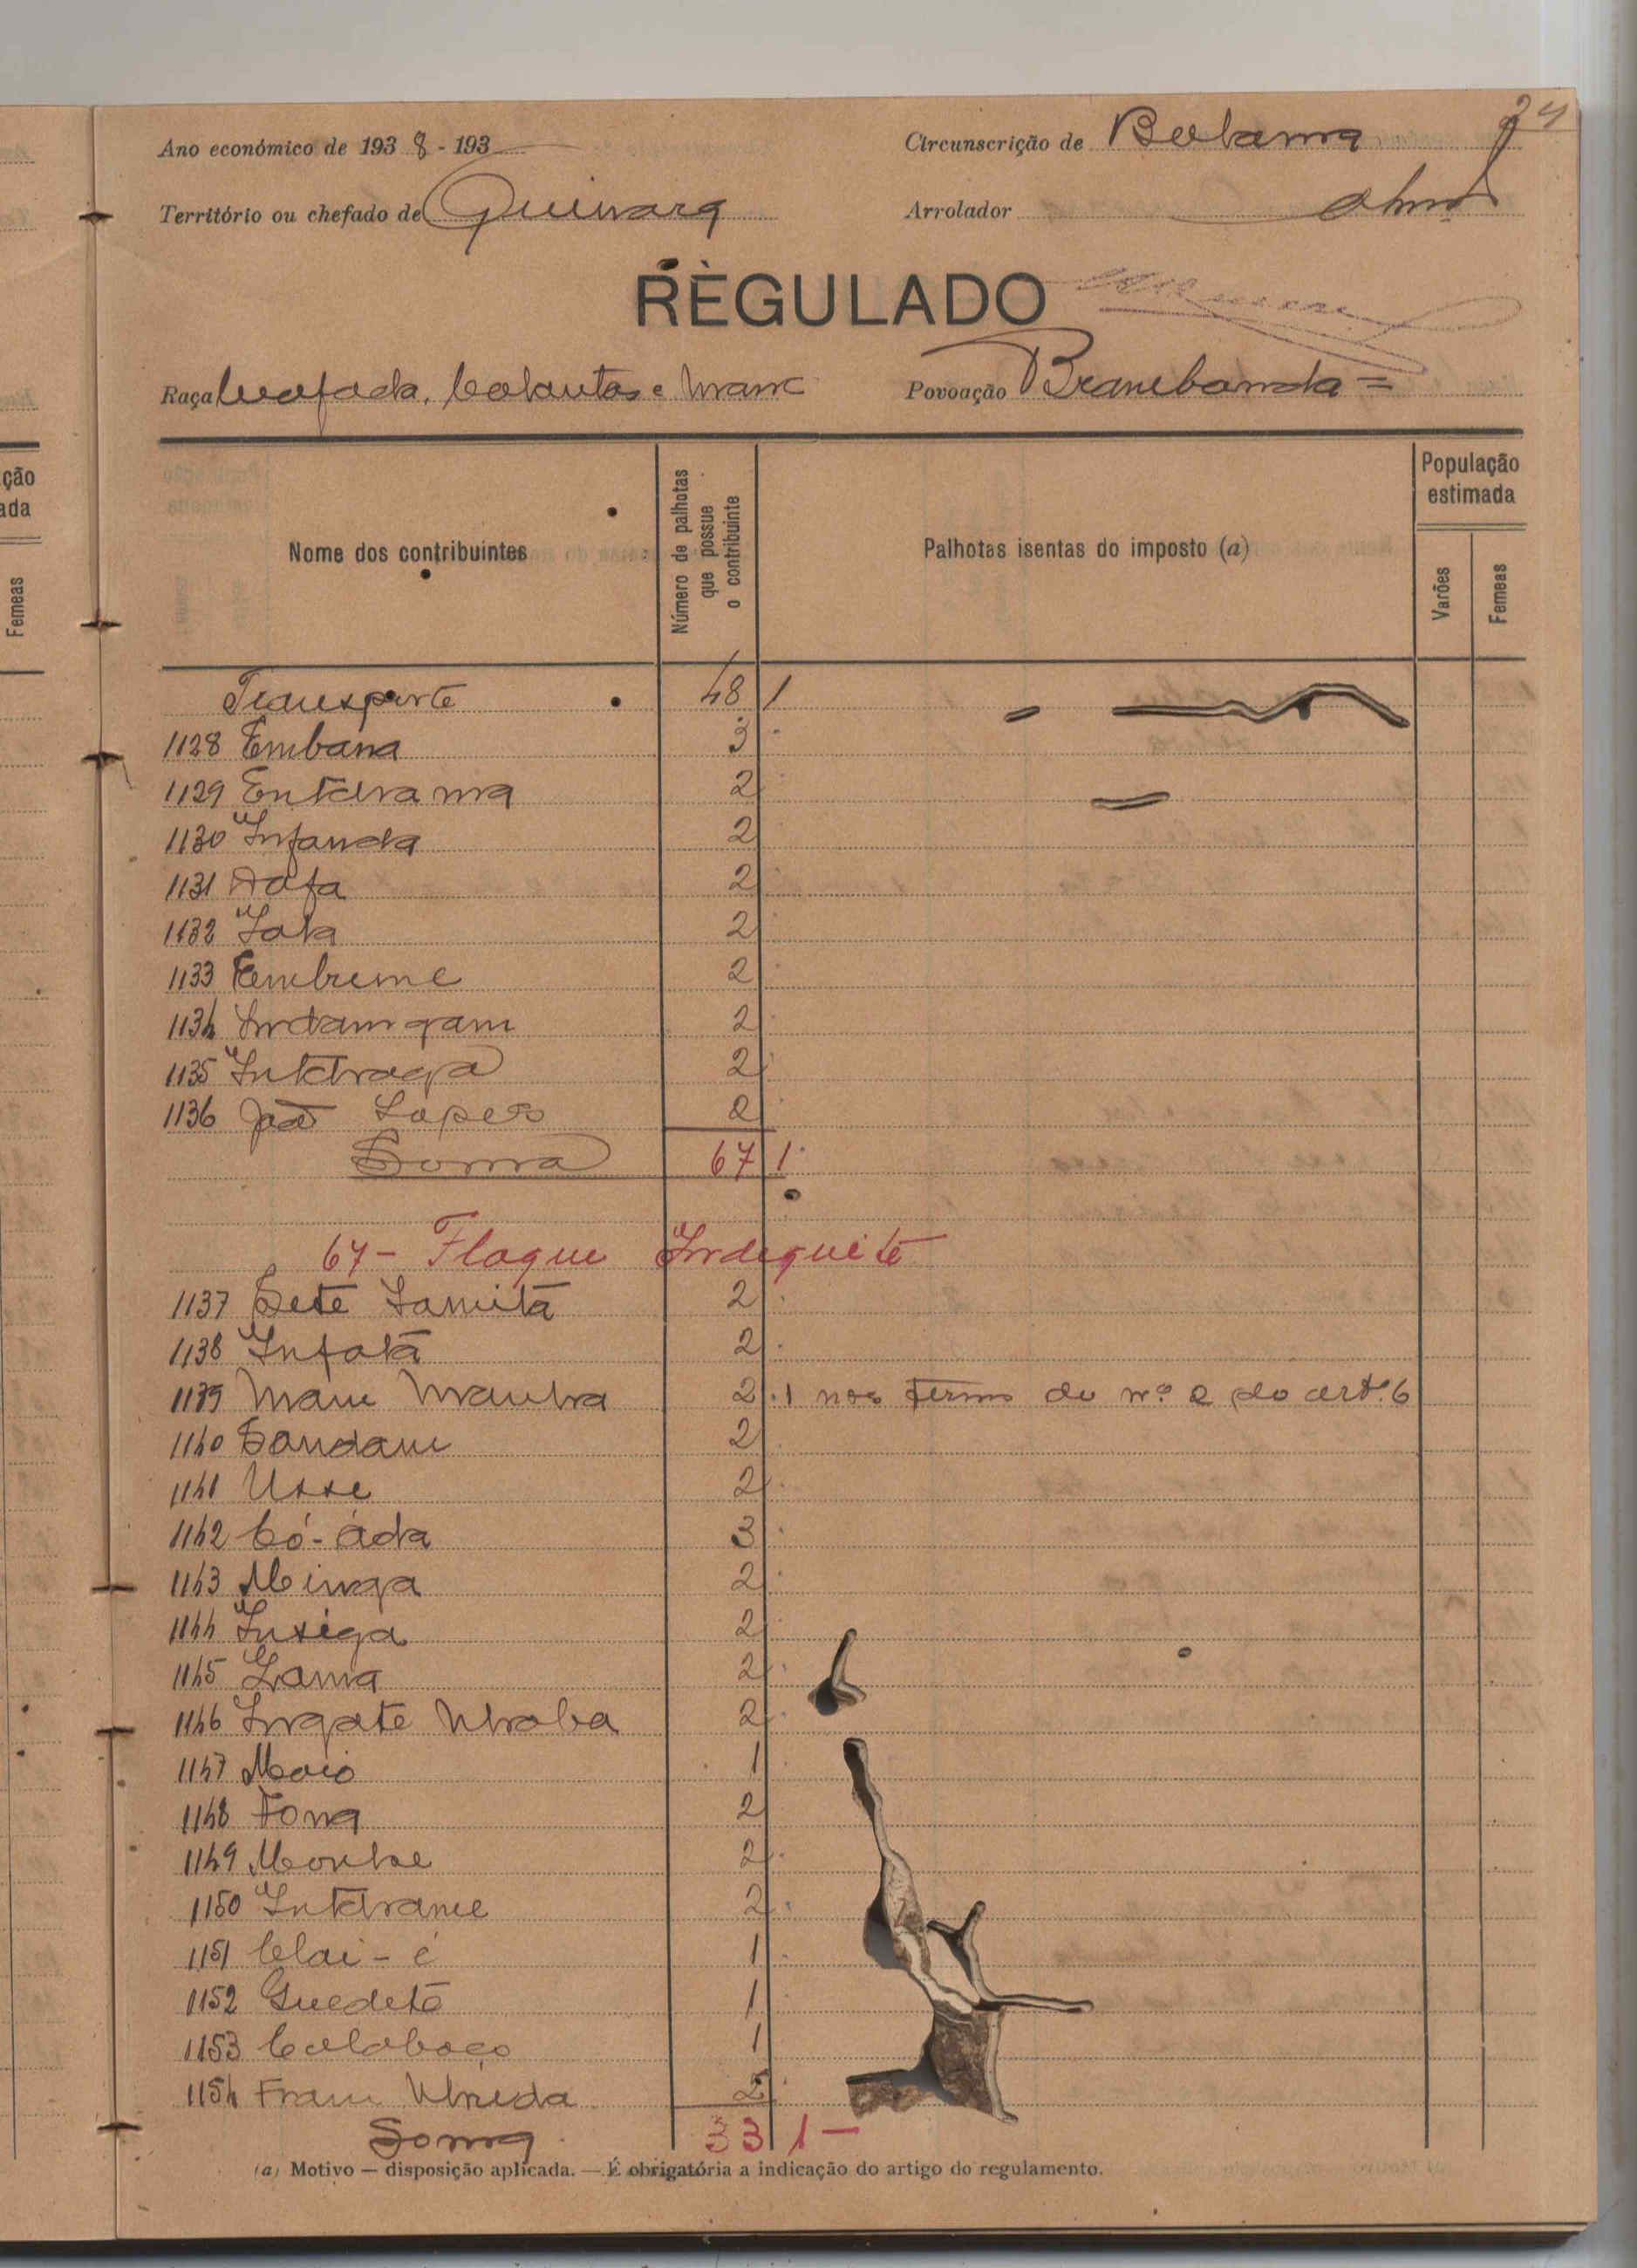 24
Ano económico de 193 8 - 193
Circunscrição de Bolama
Território ou chefado de Quinara
Arrolador
RÈGULADO
Raça Beafada, Balantas e Manc
Povoação Brambanda =
Nome dos contribuintes
Número de palhotas que possue o contribuinte
Palhotas isentas do imposto (a)
População estimada
Varões
Femeas
Transporte 48 1
1128 Embana 3
1129 Entchama 2
1130 Infanda 2
1131 Dafa 2
1132 Iala 2
1133 Embrime 2
1134 Indamgam 2
1135 Intchaga 2
1136 João Lopes 2
Soma 67 1
67 - Flaque Indequité
1137 Sete Iamitá 2
1138 Infatá 2
1139 Mam 2 1 nos termos do nº 2 do artº 6
1140 Sandam 2
1141 Usse 2
1142 Có-áda 3
1143 Minga 2
1144 Insiga 2
1145 Iama 2
1146 Ingate 2
1147 Maio 1
1148 Fona 2
1149 2
1150 Intchame 2
1151 Clai-é 1
1152 Guedetá 1
1153 Calabaço 1
1154 Fram 2
Soma 33 1 -
(a) Motivo — disposição aplicada. — É obrigatória a indicação do artigo do regulamento.
ção
ada
Femeas